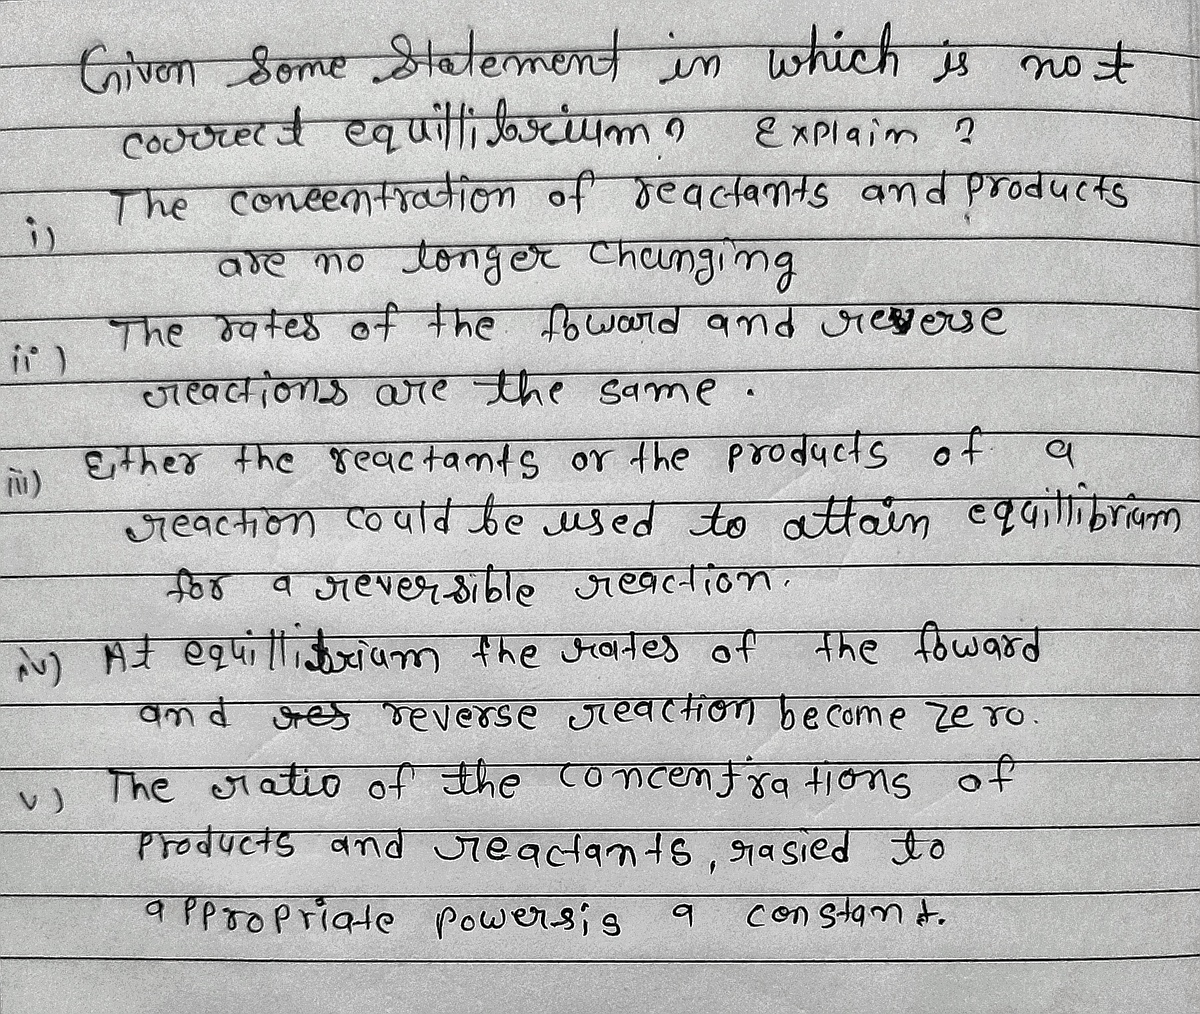 Given Some Statement in which is not
correct equillibrium? Explain?
i) The concentration of reactants and products
are no longer changing
ii) The rates of the foward and reverse
reactions are the same.
iii) Either the reactants or the products of a
reaction could be used to attain equillibrium
for a reversible reaction.
iv) At equillibrium the rates of the foward
and res reverse reaction become zero.
v) The ratio of the concentrations of
products and reactants, rasied to
appropriate powers is a constant.